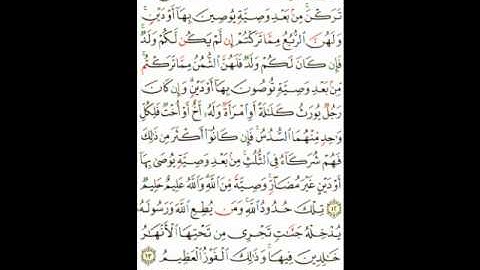 تَرَكْنَ مِنۢ بَعْدِ وَصِيَّةٍ يُوصِينَ بِهَآ أَوْ دَيْنٍ
وَلَهُنَّ ٱلرُّبُعُ مِمَّا تَرَكْتُمْ إِن لَّمْ يَكُن لَّكُمْ وَلَدٌ
فَإِن كَانَ لَكُمْ وَلَدٌ فَلَهُنَّ ٱلثُّمُنُ مِمَّا تَرَكْتُم
مِّنۢ بَعْدِ وَصِيَّةٍ تُوصُونَ بِهَآ أَوْ دَيْنٍ وَإِن كَانَ
رَجُلٌ يُورَثُ كَلَٰلَةً أَوِ ٱمْرَأَةٌ وَلَهُۥٓ أَخٌ أَوْ أُخْتٌ فَلِكُلِّ
وَٰحِدٍ مِّنْهُمَا ٱلسُّدُسُ فَإِن كَانُوٓا۟ أَكْثَرَ مِن ذَٰلِكَ
فَهُمْ شُرَكَآءُ فِى ٱلثُّلُثِ مِنۢ بَعْدِ وَصِيَّةٍ يُوصَىٰ بِهَآ
أَوْ دَيْنٍ غَيْرَ مُضَآرٍّ وَصِيَّةً مِّنَ ٱللَّهِ وَٱللَّهُ عَلِيمٌ حَلِيمٌ
۝١٢ تِلْكَ حُدُودُ ٱللَّهِ وَمَن يُطِعِ ٱللَّهَ وَرَسُولَهُۥ
يُدْخِلْهُ جَنَّٰتٍ تَجْرِى مِن تَحْتِهَا ٱلْأَنْهَٰرُ
خَٰلِدِينَ فِيهَا وَذَٰلِكَ ٱلْفَوْزُ ٱلْعَظِيمُ ۝١٣